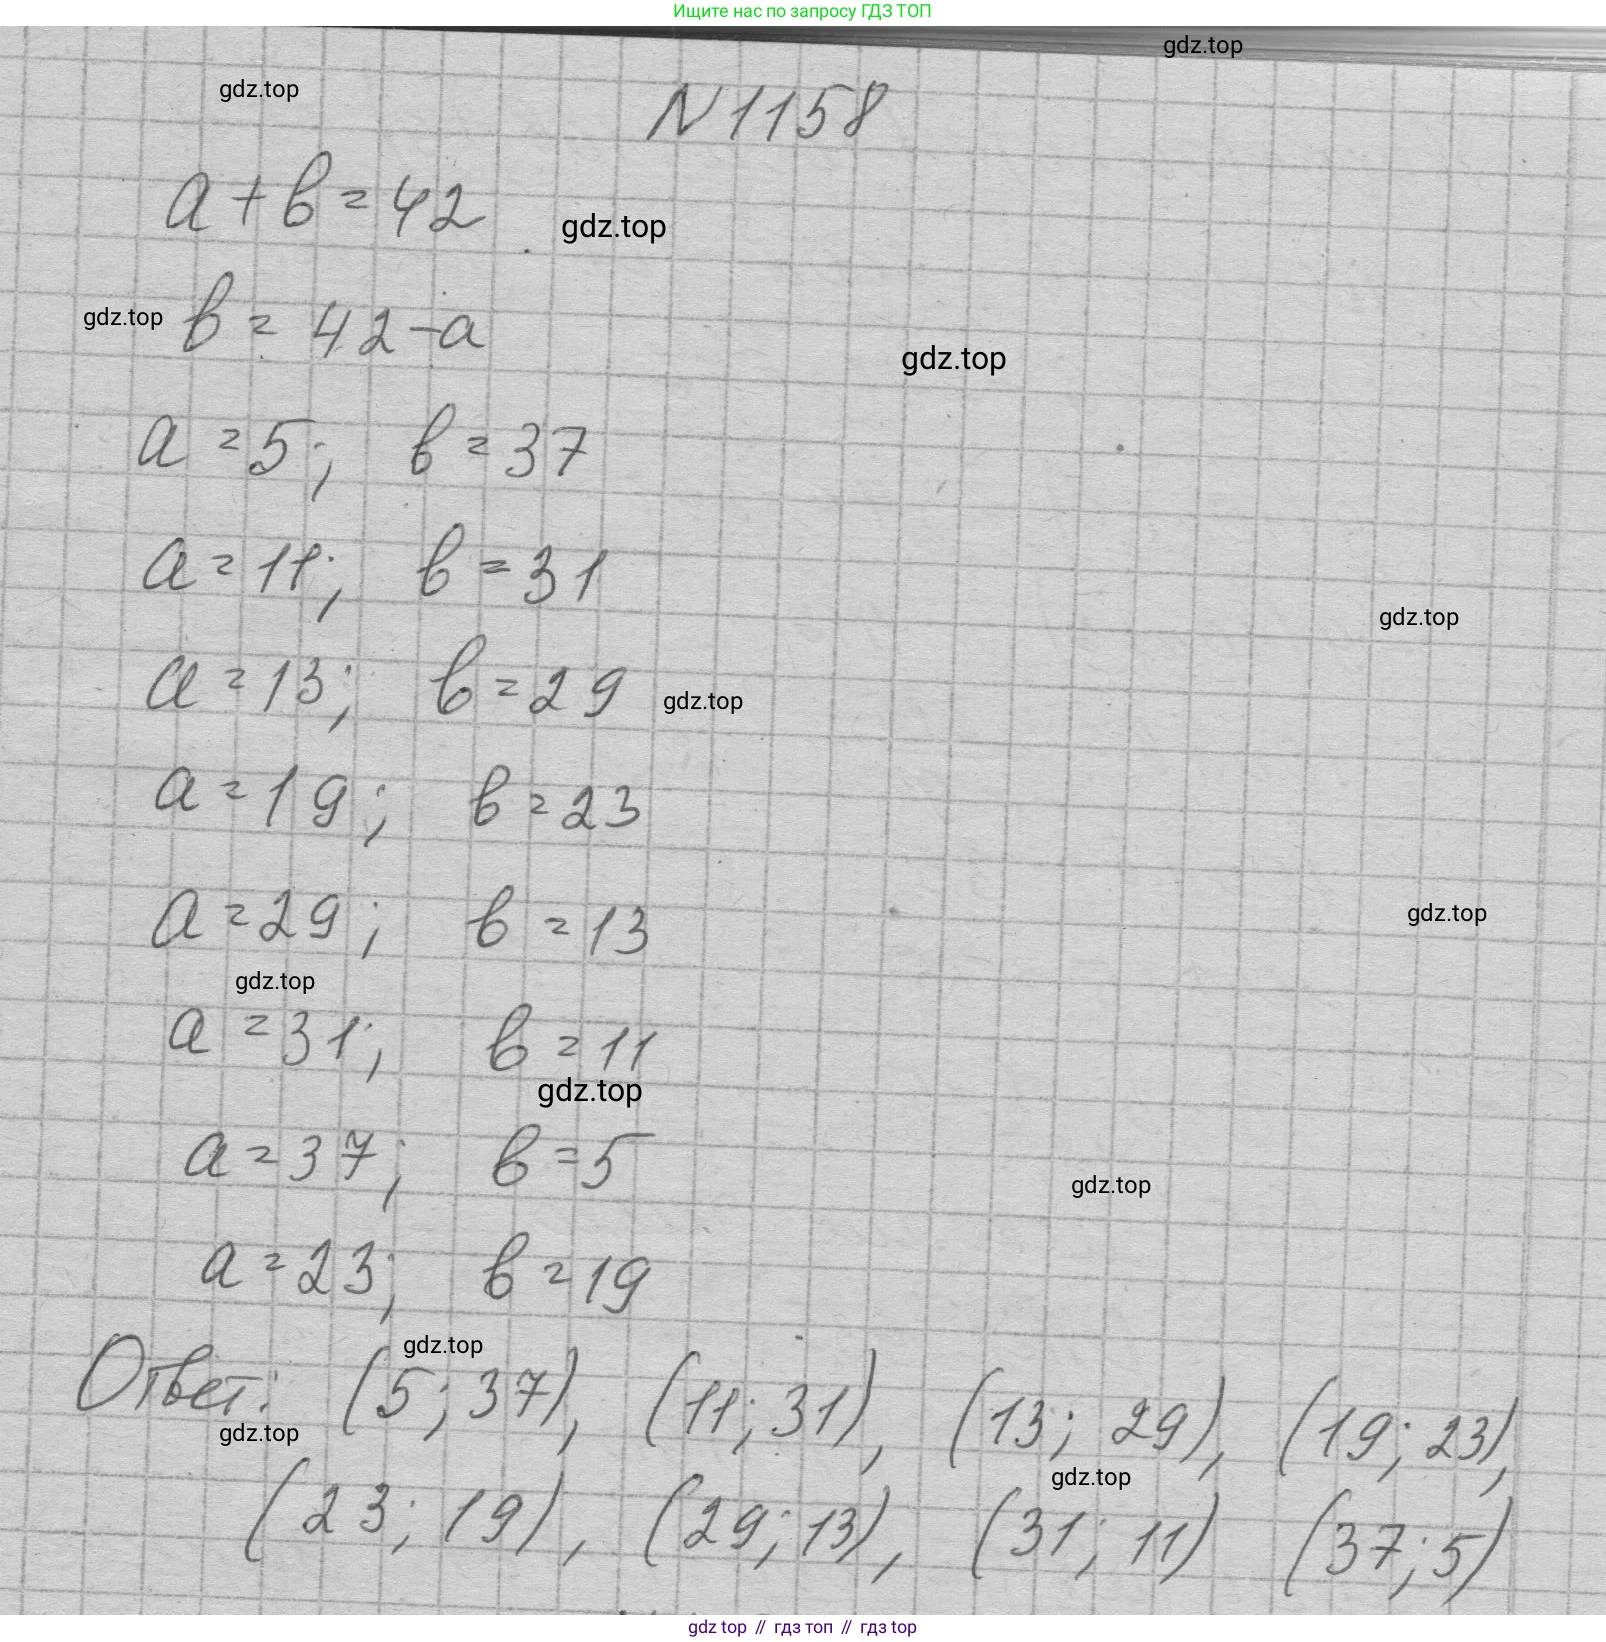 Ищите нас по запросу ГДЗ ТОП
gdz.top
gdz.top
N 1158
a + b = 42
gdz.top
gdz.top
b = 42 - a
gdz.top
a = 5; b = 37
a = 11; b = 31
gdz.top
a = 13; b = 29
gdz.top
a = 19; b = 23
a = 29; b = 13
gdz.top
gdz.top
a = 31; b = 11
gdz.top
a = 37; b = 5
gdz.top
a = 23; b = 19
gdz.top
Ответ: (5; 37), (11; 31), (13; 29), (19; 23),
gdz.top
gdz.top
(23; 19), (29; 13), (31; 11) (37; 5)
gdz.top // гдз топ // гдз top